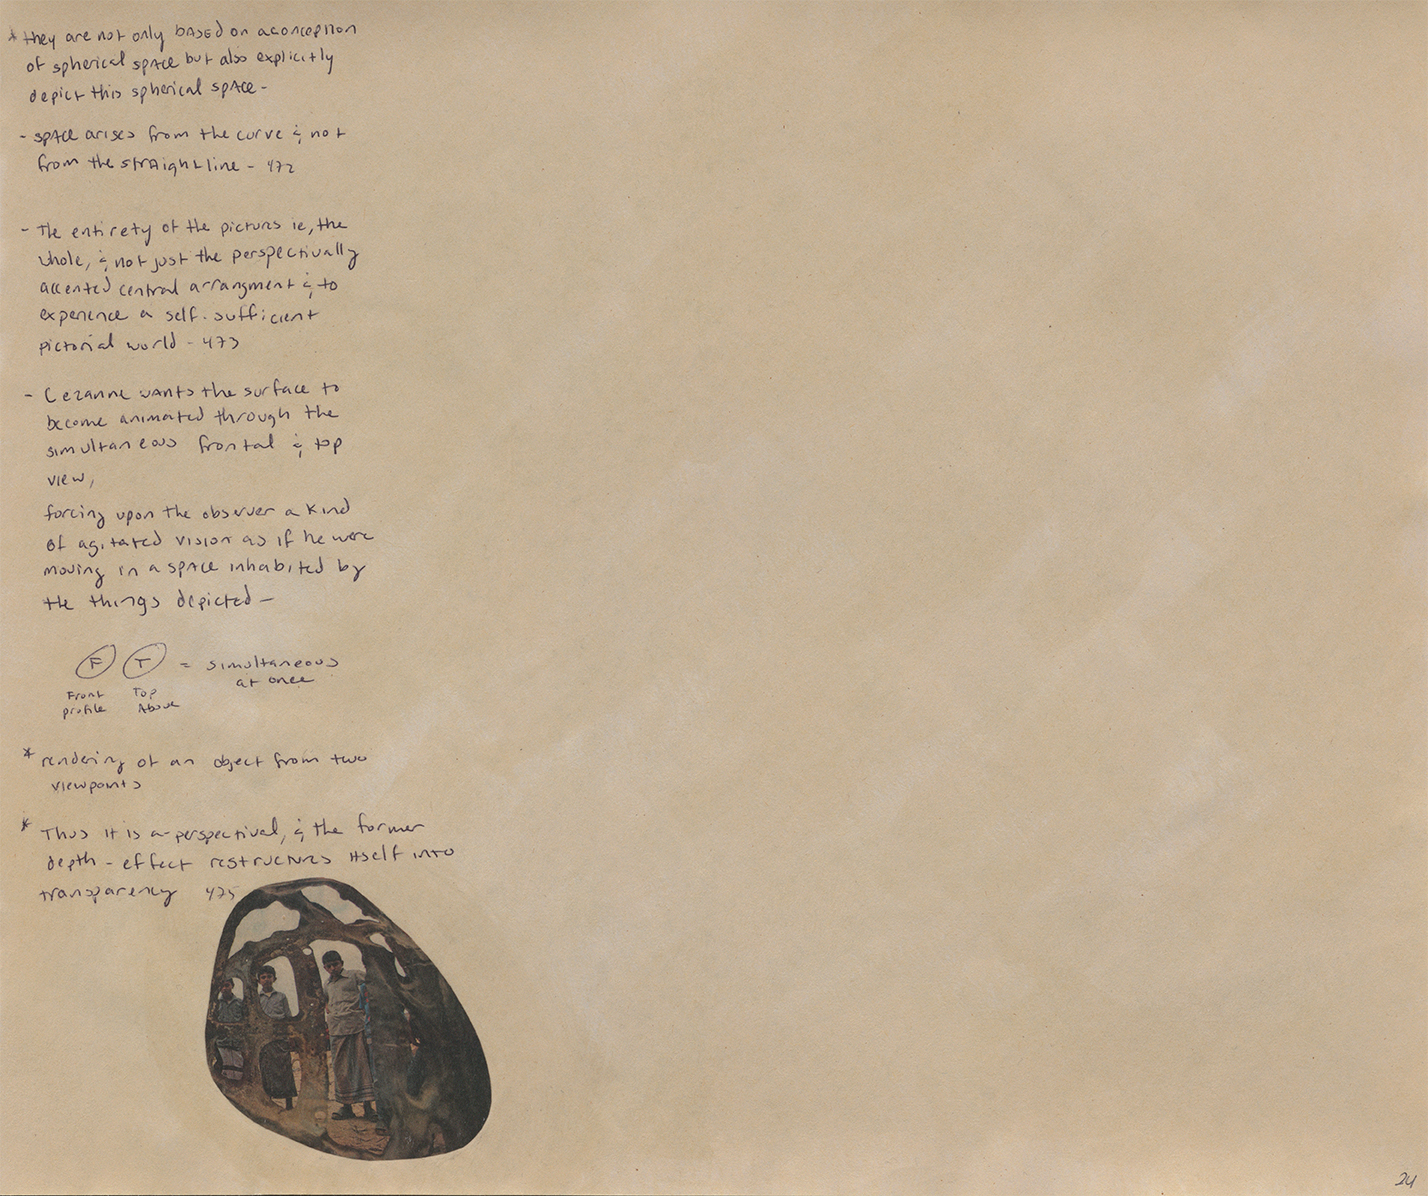 * they are not only based on a conception
of spherical space but also explicitly
depict this spherical space -
- space arises from the curve & not
from the straight line - 472
- The entirety of the pictures ie, the
whole, & not just the perspectivally
accented central arrangment & to
experience a self-sufficient
pictorial world - 473
- Cezanne wants the surface to
become animated through the
simultaneous frontal & top
view,
forcing upon the observer a kind
of agitated vision as if he were
moving in a space inhabited by
the things depicted -
F T = simultaneous
at once
Front Top
profile Above
* rendering of an object from two
viewpoints
* Thus it is a-perspectival, & the former
depth - effect restructures itself into
transparency 475
24